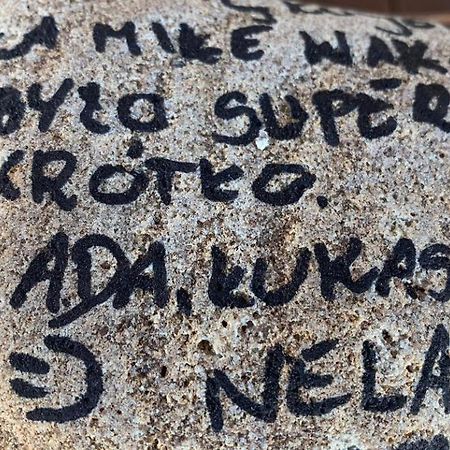 ZA MIŁE WAK
BYŁO SUPER
KRÓTKO.
ADA, ŁUKAS
=) NELA